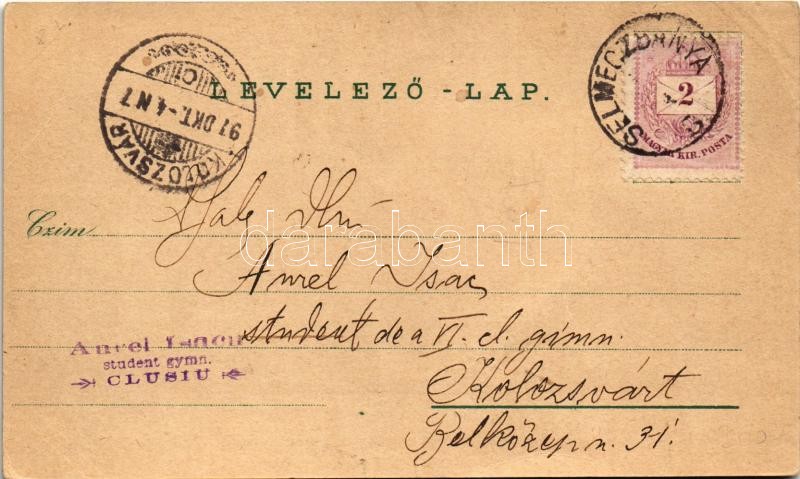 LEVELEZŐ - LAP.
SELMECZBÁNYA
2
MAGYAR KIR. POSTA
KOLOZSVÁR
97 OKT.-4.N7
Czím
Aurel Isac
student de a VI. cl. gimn.
Kolozsvárt
Belközép u. 31.
Aurel Isacu
student gymn.
CLUSIU
darabanth